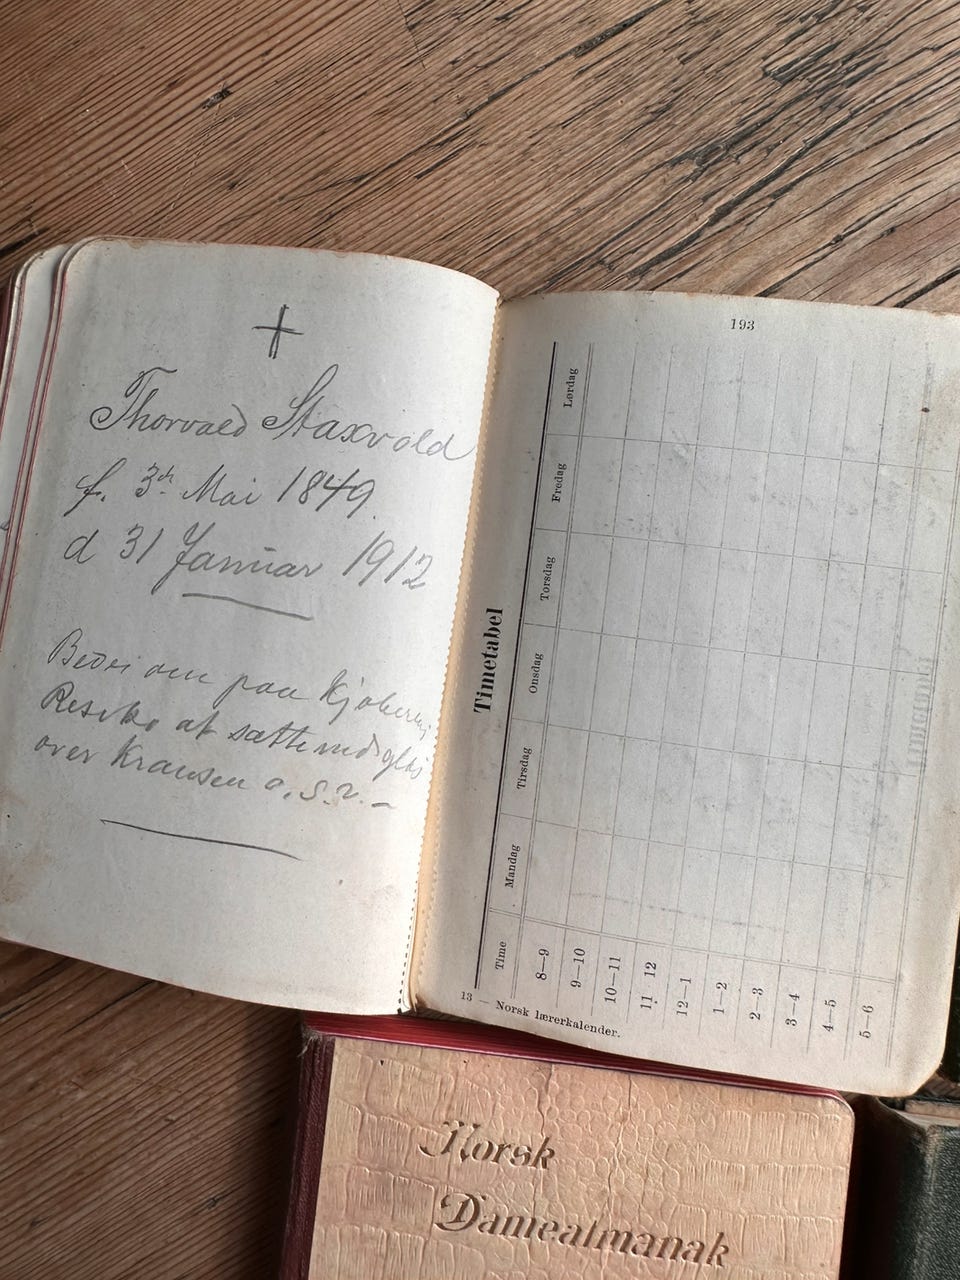 Thorvald Staxrold
f. 3dh Mai 1849.
d 31 Januar 1912
om paa
Resiko at sætte
over Kransen o.s.v. –
193
Timetabel
Time Mandag Tirsdag Onsdag Torsdag Fredag Lørdag
8—9
9—10
10—11
11 12
12 1
1—2
2—3
3—4
4—5
5—6
13 — Norsk lærerkalender.
Norsk
Damealmanak